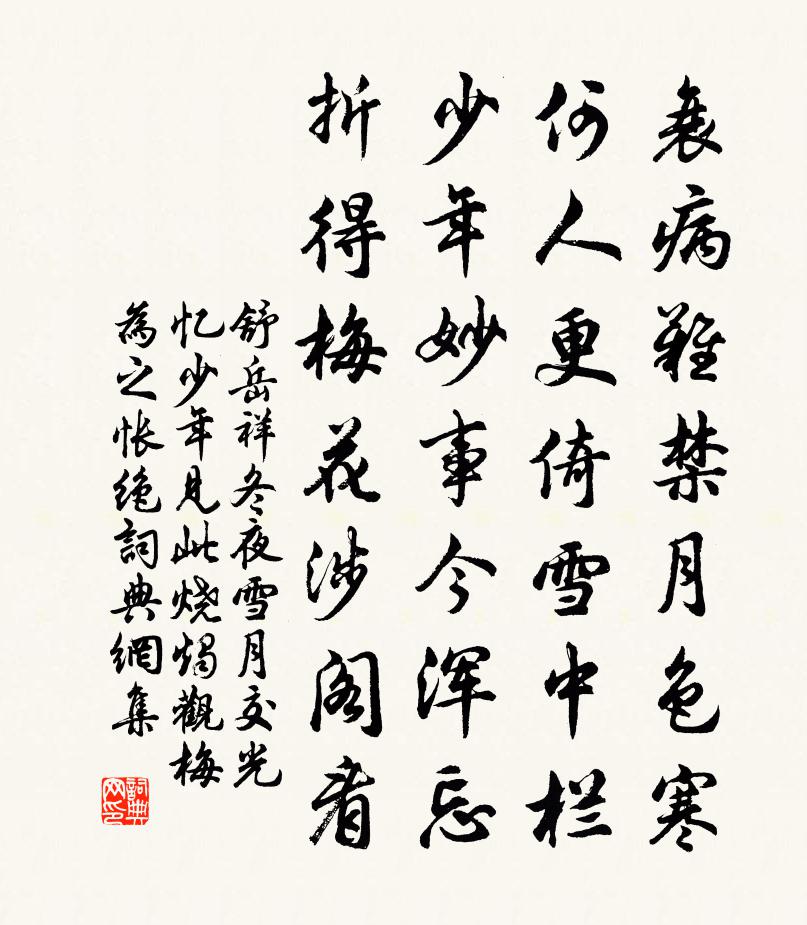 衰病難禁月色寒
何人更倚雪中栏
少年妙事今浑忘
折得梅花涉阁看
舒岳祥冬夜雪月交光
忆少年見此烧燭觀梅
為之悵绝詞典網集
詞典
网印